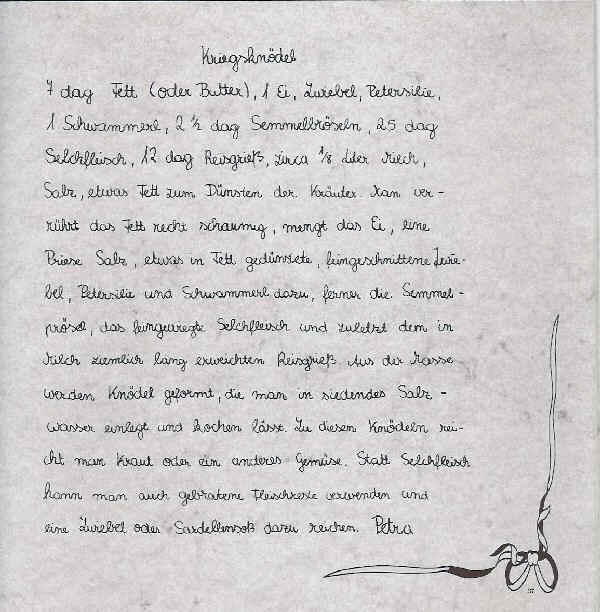 Kriegsknödel
7 dag Fett (oder Butter), 1 Ei, Zwiebel, Petersilie,
1 Schwammerl, 2 ½ dag Semmelbröseln, 25 dag
Selchfleisch, 12 dag Reisgrieß, zirca ⅛ Liter Milch,
Salz, etwas Fett zum Dünsten der Kräuter. Man ver-
rührt das Fett recht schaumig, mengt das Ei, eine
Priese Salz, etwas in Fett gedünstete, feingeschnittene Zwie-
bel, Petersilie und Schwammerl dazu, ferner die Semmel-
prösel, das feingewiegte Selchfleisch und zuletzt dem in
Milch ziemlich lang erweichten Reisgrieß. Aus der Masse
werden Knödel geformt, die man in siedendes Salz-
wasser einlegt und kochen lässt. Zu diesen Knödeln rei-
cht man Kraut oder ein anderes Gemüse. Statt Selchfleisch
kann man auch gebratene Fleischreste verwenden und
eine Zwiebel oder Sardellensoß dazu reichen. Petra